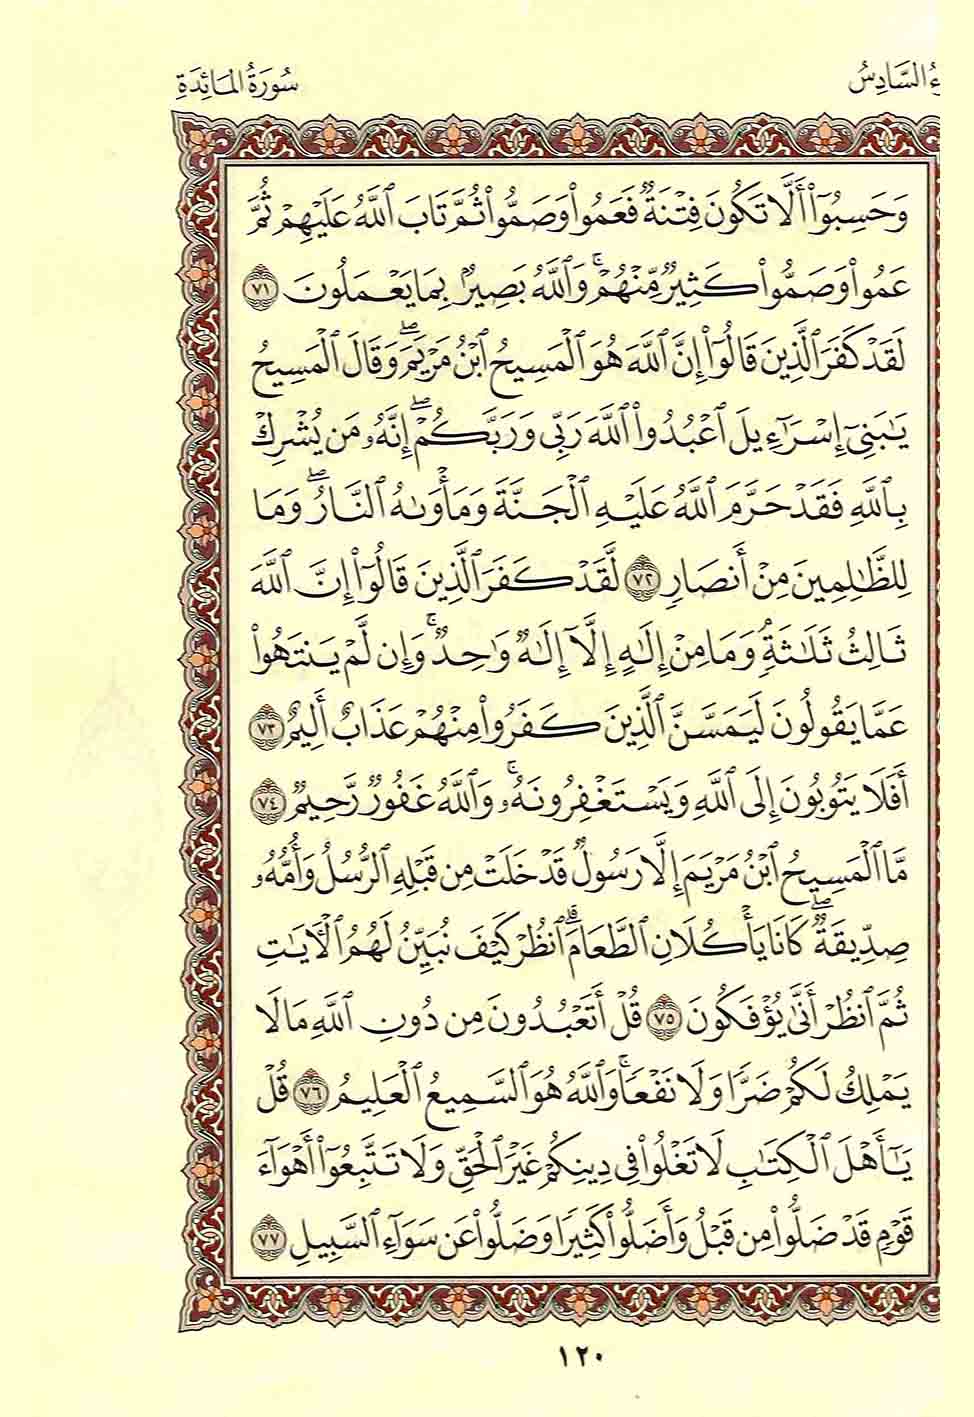 ءُ السَّادِسُ
سُورَةُ المَائِدَةِ
وَحَسِبُوٓا۟ أَلَّا تَكُونَ فِتْنَةٌ فَعَمُوا۟ وَصَمُّوا۟ ثُمَّ تَابَ ٱللَّهُ عَلَيْهِمْ ثُمَّ
عَمُوا۟ وَصَمُّوا۟ كَثِيرٌ مِّنْهُمْ ۚ وَٱللَّهُ بَصِيرٌۢ بِمَا يَعْمَلُونَ ٧١
لَقَدْ كَفَرَ ٱلَّذِينَ قَالُوٓا۟ إِنَّ ٱللَّهَ هُوَ ٱلْمَسِيحُ ٱبْنُ مَرْيَمَ ۖ وَقَالَ ٱلْمَسِيحُ
يَٰبَنِىٓ إِسْرَٰٓءِيلَ ٱعْبُدُوا۟ ٱللَّهَ رَبِّى وَرَبَّكُمْ ۖ إِنَّهُۥ مَن يُشْرِكْ
بِٱللَّهِ فَقَدْ حَرَّمَ ٱللَّهُ عَلَيْهِ ٱلْجَنَّةَ وَمَأْوَىٰهُ ٱلنَّارُ ۖ وَمَا
لِلظَّٰلِمِينَ مِنْ أَنصَارٍ ٧٢ لَّقَدْ كَفَرَ ٱلَّذِينَ قَالُوٓا۟ إِنَّ ٱللَّهَ
ثَالِثُ ثَلَٰثَةٍ ۘ وَمَا مِنْ إِلَٰهٍ إِلَّآ إِلَٰهٌ وَٰحِدٌ ۚ وَإِن لَّمْ يَنتَهُوا۟
عَمَّا يَقُولُونَ لَيَمَسَّنَّ ٱلَّذِينَ كَفَرُوا۟ مِنْهُمْ عَذَابٌ أَلِيمٌ ٧٣
أَفَلَا يَتُوبُونَ إِلَى ٱللَّهِ وَيَسْتَغْفِرُونَهُۥ ۚ وَٱللَّهُ غَفُورٌ رَّحِيمٌ ٧٤
مَّا ٱلْمَسِيحُ ٱبْنُ مَرْيَمَ إِلَّا رَسُولٌ قَدْ خَلَتْ مِن قَبْلِهِ ٱلرُّسُلُ وَأُمُّهُۥ
صِدِّيقَةٌ ۖ كَانَا يَأْكُلَانِ ٱلطَّعَامَ ۗ ٱنظُرْ كَيْفَ نُبَيِّنُ لَهُمُ ٱلْءَايَٰتِ
ثُمَّ ٱنظُرْ أَنَّىٰ يُؤْفَكُونَ ٧٥ قُلْ أَتَعْبُدُونَ مِن دُونِ ٱللَّهِ مَا لَا
يَمْلِكُ لَكُمْ ضَرًّا وَلَا نَفْعًا ۚ وَٱللَّهُ هُوَ ٱلسَّمِيعُ ٱلْعَلِيمُ ٧٦ قُلْ
يَٰٓأَهْلَ ٱلْكِتَٰبِ لَا تَغْلُوا۟ فِى دِينِكُمْ غَيْرَ ٱلْحَقِّ وَلَا تَتَّبِعُوٓا۟ أَهْوَآءَ
قَوْمٍ قَدْ ضَلُّوا۟ مِن قَبْلُ وَأَضَلُّوا۟ كَثِيرًا وَضَلُّوا۟ عَن سَوَآءِ ٱلسَّبِيلِ ٧٧
١٢٠